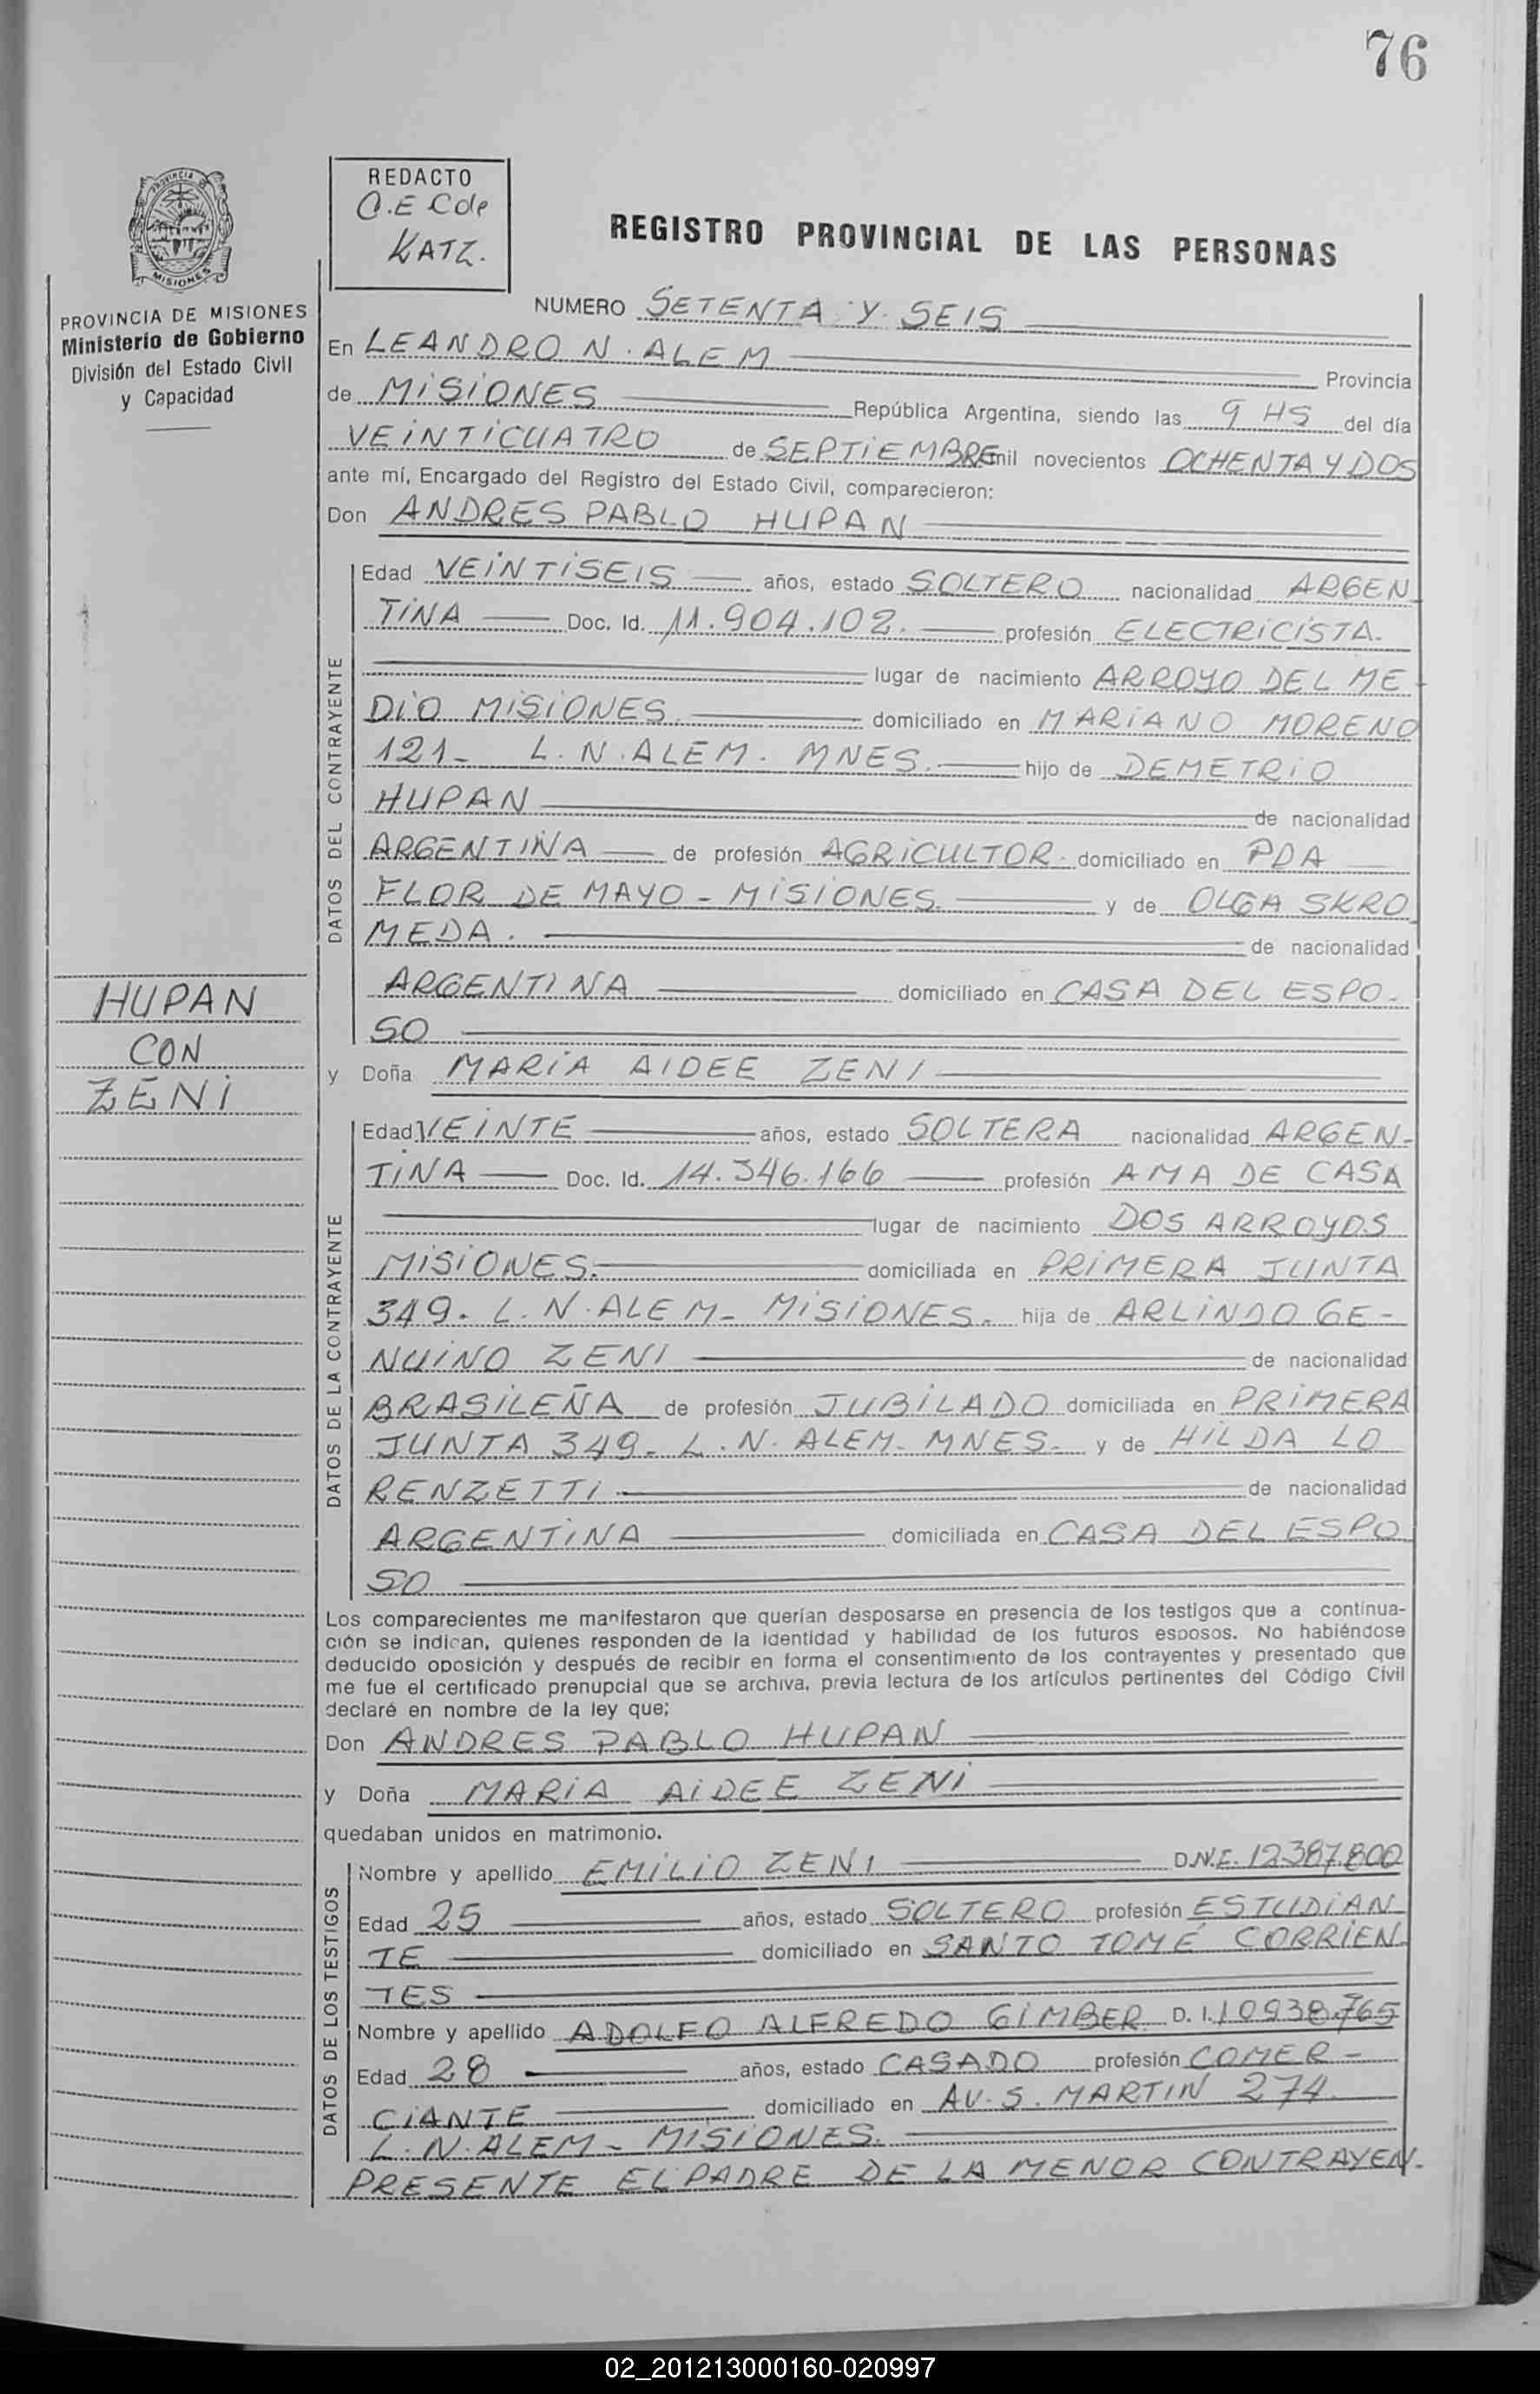 76
PROVINCIA DE
MISIONES
PROVINCIA DE MISIONES
Ministerio de Gobierno
División del Estado Civil
y Capacidad
REDACTO
O.E C de
KATZ.
REGISTRO PROVINCIAL DE LAS PERSONAS
NUMERO SETENTA Y SEIS
En LEANDRO N. ALEM Provincia
de MISIONES República Argentina, siendo las 9 HS del día
VEINTICUATRO de SEPTIEMBRE mil novecientos OCHENTA Y DOS
ante mí, Encargado del Registro del Estado Civil, comparecieron:
Don ANDRES PABLO HUPAN
DATOS DEL CONTRAYENTE
Edad VEINTISEIS años, estado SOLTERO nacionalidad ARGEN
TINA Doc. Id. 11.904.102. profesión ELECTRICISTA.
lugar de nacimiento ARROYO DEL ME-
DIO MISIONES domiciliado en MARIANO MORENO
121- L.N.ALEM. MNES. hijo de DEMETRIO
HUPAN de nacionalidad
ARGENTINA de profesión AGRICULTOR. domiciliado en PDA
FLOR DE MAYO - MISIONES. y de OLGA SKRO
MEDA. de nacionalidad
ARGENTINA domiciliado en CASA DEL ESPO-
SO
HUPAN
CON
ZENI
y Doña MARIA AIDEE ZENI
DATOS DE LA CONTRAYENTE
Edad VEINTE años, estado SOLTERA nacionalidad ARGEN-
TINA Doc. Id. 14.346.166 profesión AMA DE CASA
lugar de nacimiento DOS ARROYOS
MISIONES. domiciliada en PRIMERA JUNTA
349. L.N.ALEM- MISIONES. hija de ARLINDO GE-
NUINO ZENI de nacionalidad
BRASILEÑA de profesión JUBILADO domiciliada en PRIMERA
JUNTA 349- L.N. ALEM- MNES. y de HILDA LO
RENZETTI de nacionalidad
ARGENTINA domiciliada en CASA DEL ESPO
SO
Los comparecientes me manifestaron que querían desposarse en presencia de los testigos que a continua-
ción se indican, quienes responden de la identidad y habilidad de los futuros esposos. No habiéndose
deducido oposición y después de recibir en forma el consentimiento de los contrayentes y presentado que
me fue el certificado prenupcial que se archiva, previa lectura de los artículos pertinentes del Código Civil
declaré en nombre de la ley que;
Don ANDRES PABLO HUPAN
y Doña MARIA AIDEE ZENI
quedaban unidos en matrimonio.
DATOS DE LOS TESTIGOS
Nombre y apellido EMILIO ZENI D.N.I. 12387.800
Edad 25 años, estado SOLTERO profesión ESTUDIAN
TE domiciliado en SANTO TOMÉ CORRIEN
TES
Nombre y apellido ADOLFO ALFREDO GIMBER D. I. 10938.765
Edad 28 años, estado CASADO profesión COMER-
CIANTE domiciliado en AV. S. MARTIN 274.
L.N.ALEM- MISIONES.
PRESENTE EL PADRE DE LA MENOR CONTRAYEN-
02_201213000160-020997